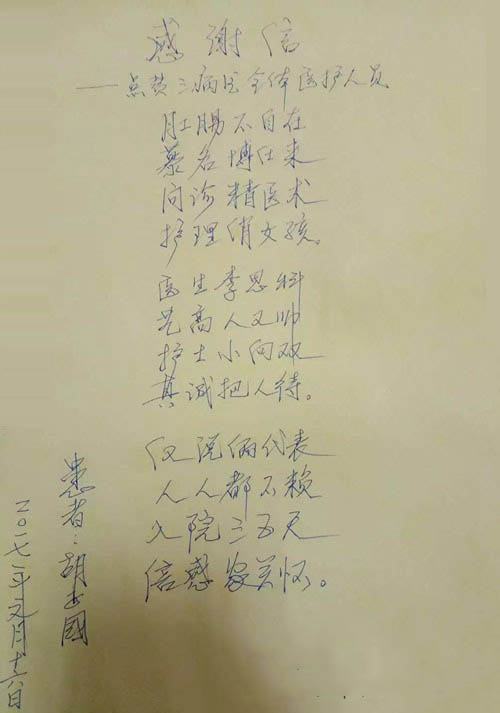 感谢信
——点赞三病区全体医护人员
肛肠不自在
慕名博仕来
问诊精医术
护理俏女孩。
医生李思科
艺高人又帅
护士小向双
真诚把人待。
仅说俩代表
人人都不赖
入院三五天
倍感家关怀。
患者:胡国
二〇一七年元月十六日